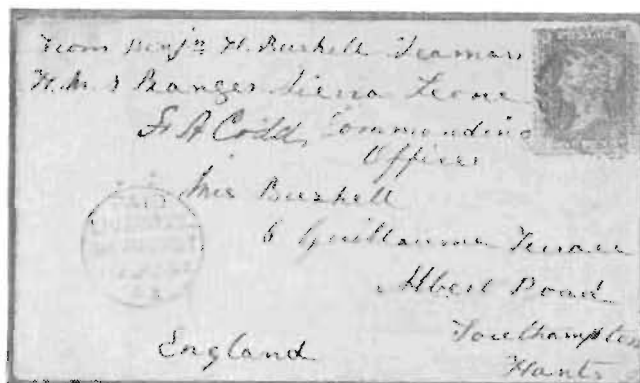 From Benjn H. Burkell Seaman
H.M.S Ranger Sierra Leone
F A Codd, Commanding
Officer
Burkell
6 Guillaume Terrace
Albert Road
Southampton
Hants
England